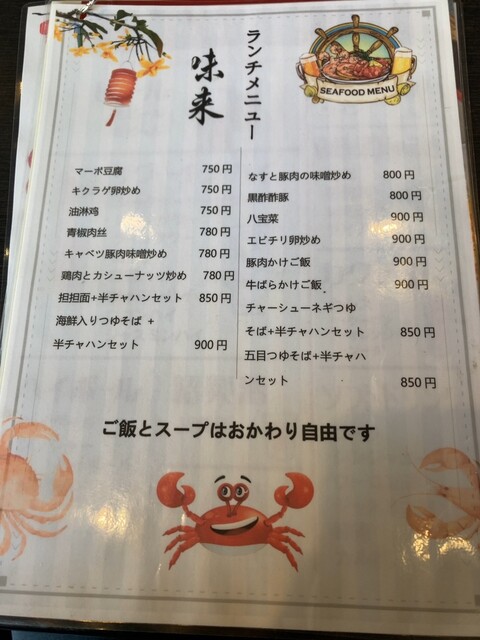 ランチメニュー
味来
SEAFOOD MENU
マーボ豆腐 750円
キクラゲ卵炒め 750円
油淋鸡 750円
青椒肉丝 780円
キャベツ豚肉味噌炒め 780円
鶏肉とカシューナッツ炒め 780円
担担面+半チャハンセット 850円
海鮮入りつゆそば +
半チャハンセット 900円
なすと豚肉の味噌炒め 800円
黒酢酢豚 800円
八宝菜 900円
エビチリ卵炒め 900円
豚肉かけご飯 900円
牛ばらかけご飯 900円
チャーシューネギつゆ
そば+半チャハンセット 850円
五目つゆそば+半チャハ
ンセット 850円
ご飯とスープはおかわり自由です